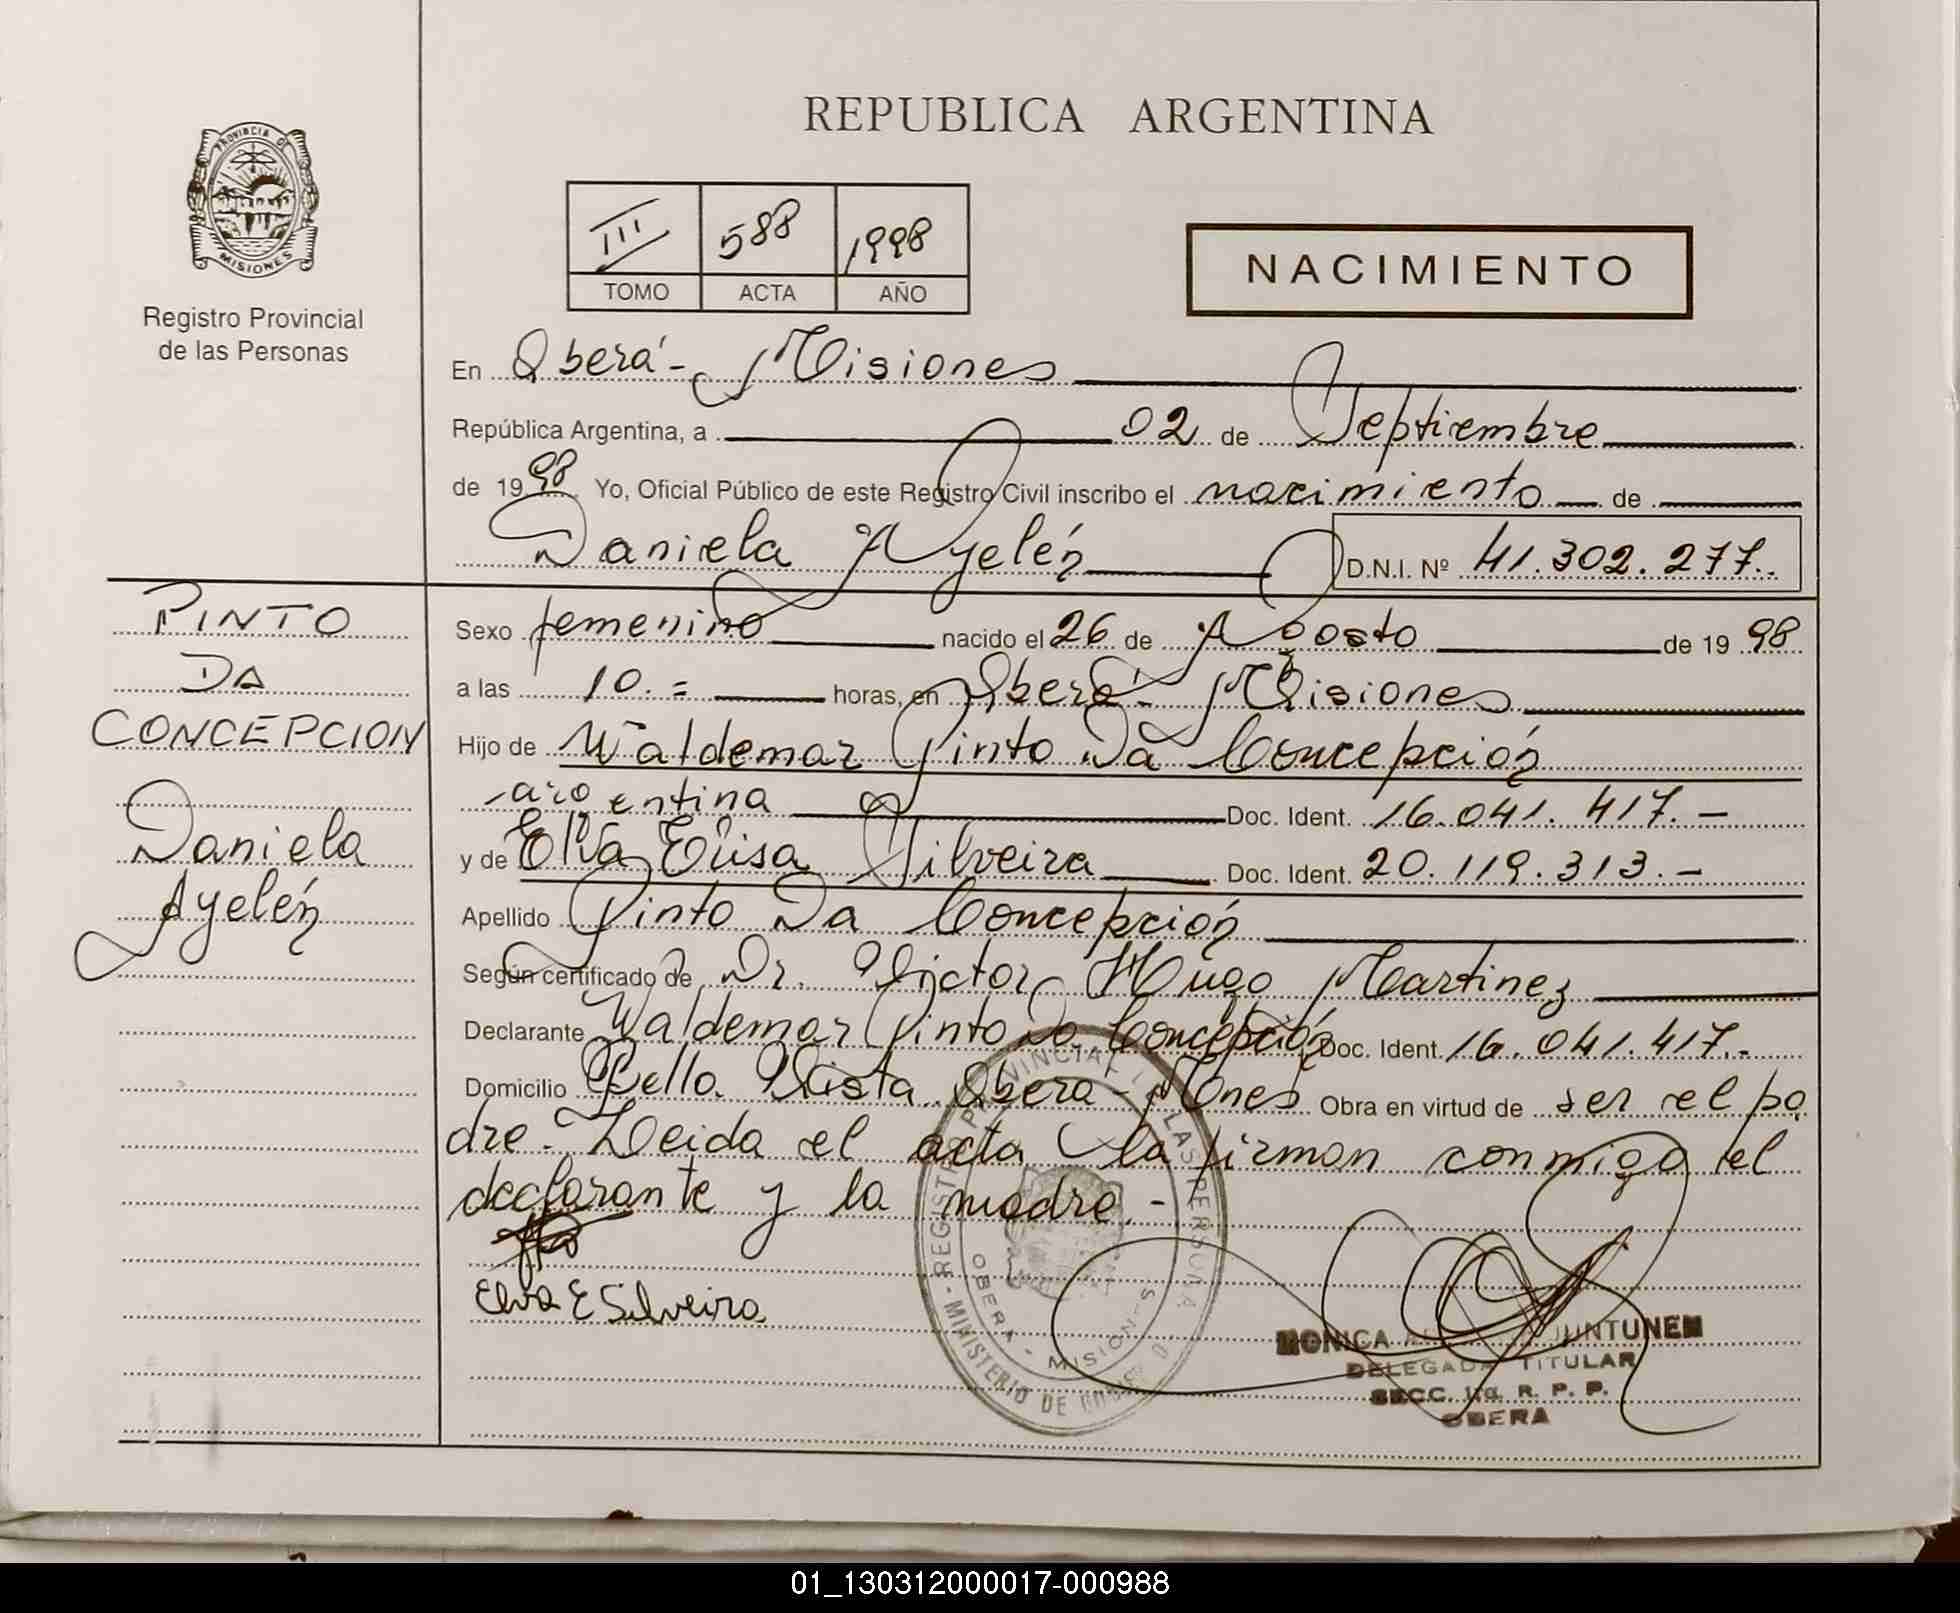 REPUBLICA ARGENTINA
PROVINCIA DE
MISIONES
Registro Provincial
de las Personas
III 588 1998
TOMO ACTA AÑO
NACIMIENTO
En Oberá - Misiones
República Argentina, a 02 de Septiembre
de 1998 Yo, Oficial Público de este Registro Civil inscribo el nacimiento de
Daniela Ayelén D.N.I. Nº 41.302.277.
PINTO
DA
CONCEPCION
Daniela
Ayelén
Sexo femenino nacido el 26 de Agosto de 1998
a las 10.= horas, en Oberá - Misiones
Hijo de Waldemar Pinto Da Concepción
argentina Doc. Ident. 16.041.417.-
y de Elva Elisa Silveira Doc. Ident. 20.119.313.-
Apellido Pinto Da Concepción
Según certificado de Dr. Victor Hugo Martinez
Declarante Waldemar Pinto Da Concepción Doc. Ident. 16.041.417.-
Domicilio Bella Vista Oberá - Mnes Obra en virtud de ser el pa
dre.- Leida el acta la firman conmigo el
declarante y la madre.-
Elva E Silveira
REGISTRO PROVINCIAL LAS PERSONAS
OBERA - MISIONES
MINISTERIO DE
MONICA JUNTUNEN
DELEGADA TITULAR
SECC. 1ra. R. P. P.
OBERA
01_130312000017-000988